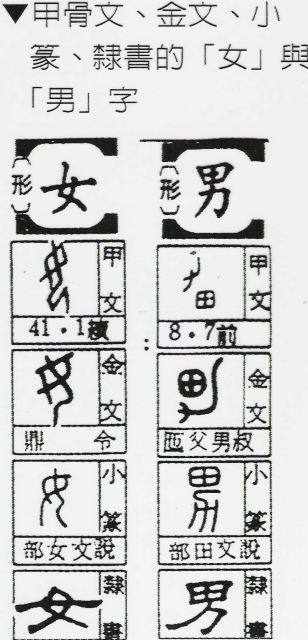 ▼甲骨文、金文、小
篆、隸書的「女」與
「男」字
女
(形)
甲文
41·1續
金文
鼎 令
小篆
部女文說
隸書
女
男
(形)
甲文
8·7前
金文
匜父男叔
小篆
部田文說
隸書
男